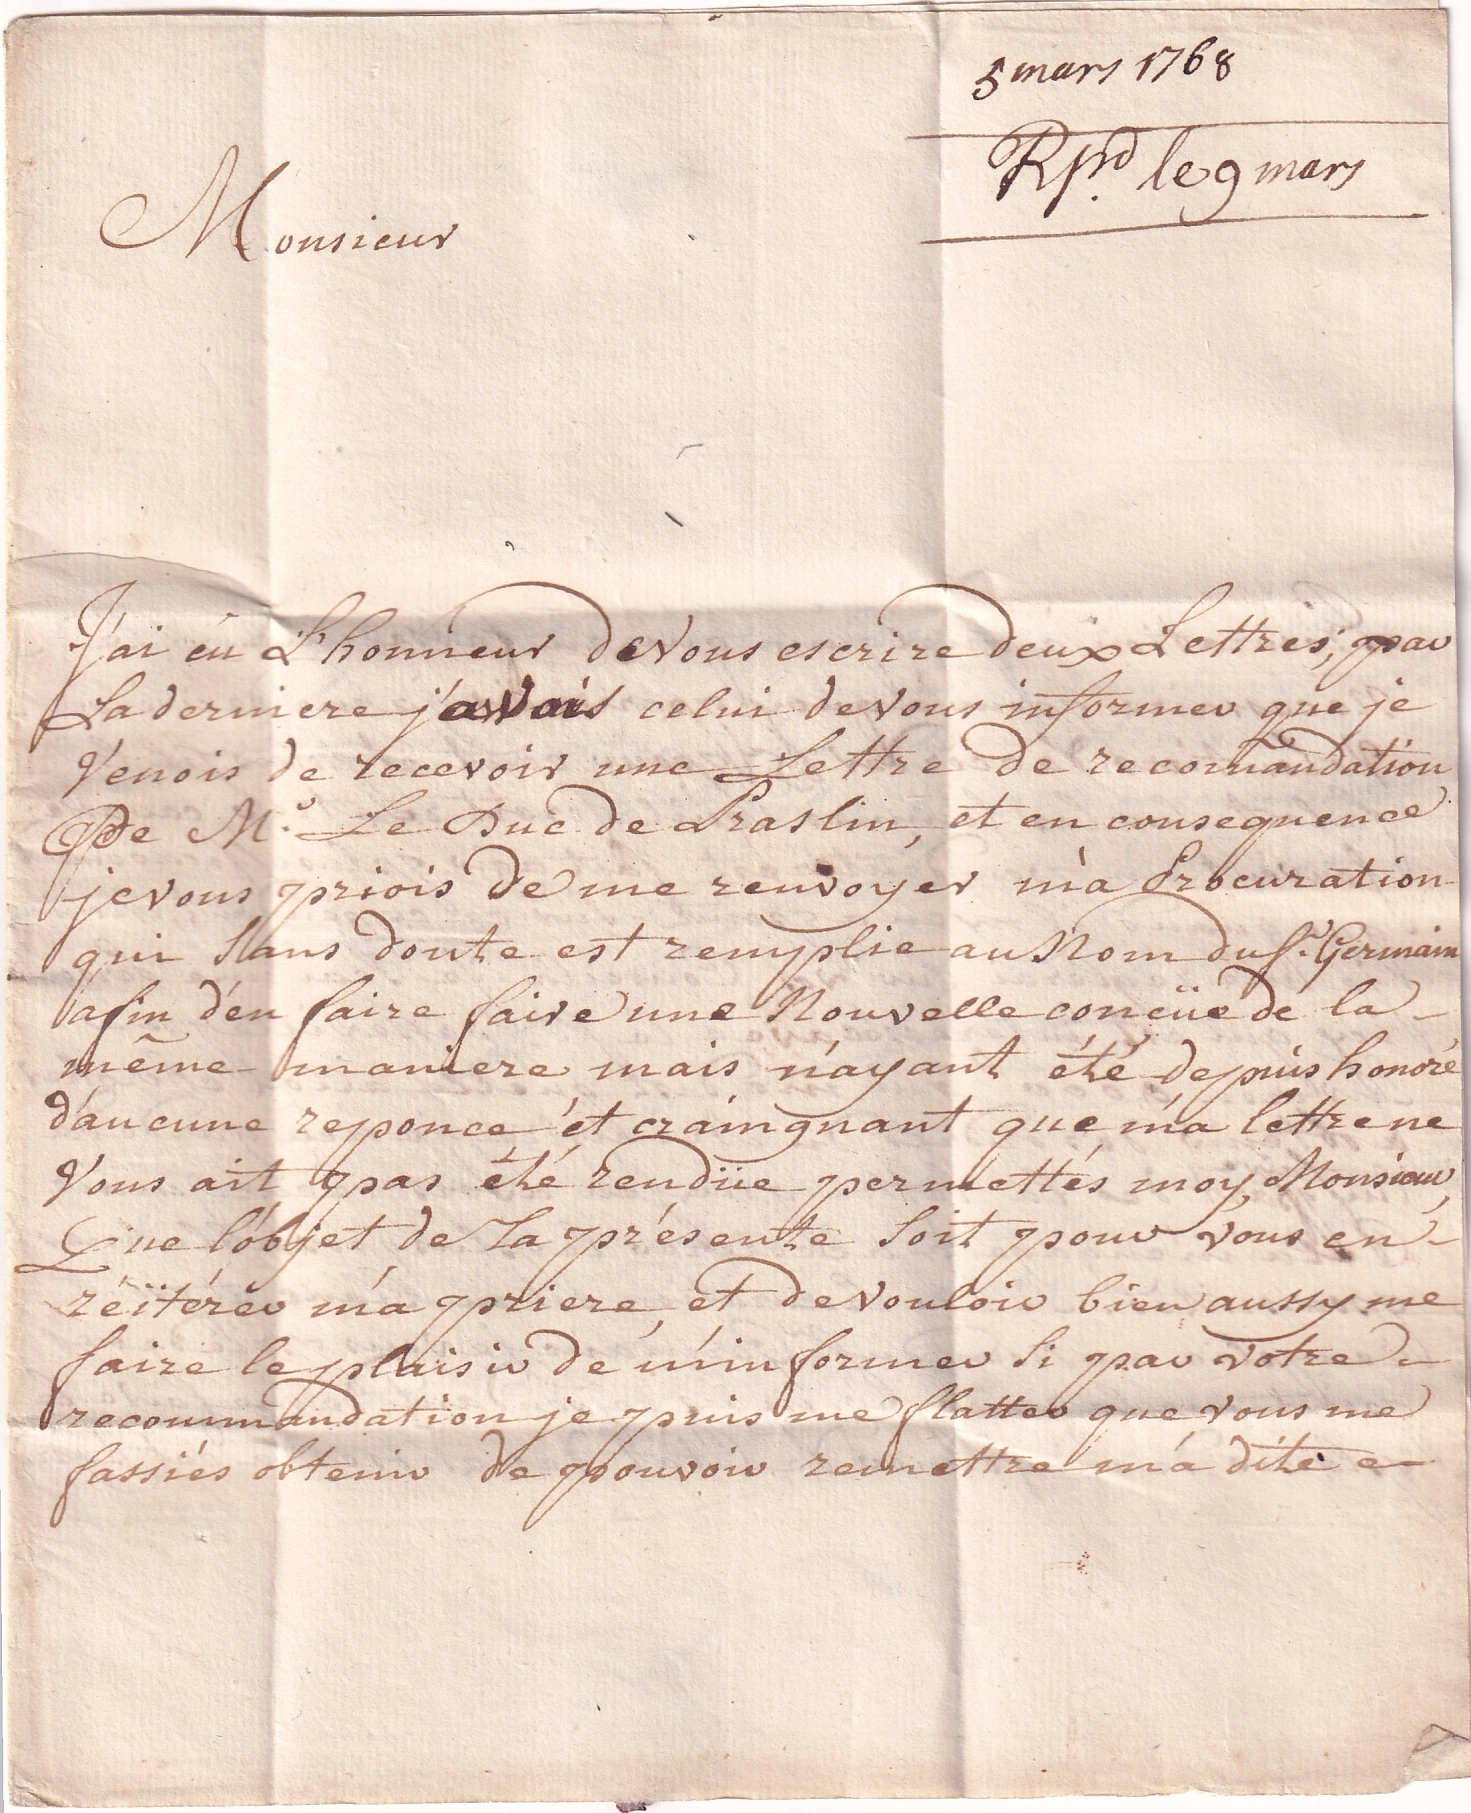 5 mars 1768
Rpd. le 9 mars
Monsieur
J'ai eü L'honneur de Vous escrire deux Lettres, par
La derniere j'avais celui de Vous informer que je
Venois de recevoir une Lettre de recomandation
De Mr. Le Duc de Praslin, et en consequence
je vous priois de me renvoyer m'a Procuration
qui Sans doute est remplie au Nom du Sr. Germain
afin d'en faire faire une Nouvelle conçüe de la
même maniere mais n'ayant été depuis honoré
d'aucune reponce ét craingnant que m'a lettre ne
Vous ait pas été rendüe permettés moy, Monsieur,
Que l'objet de La présente Soit pour vous en
réïtérer m'a priere, et de vouloir bien aussy me
faire le plaisir de m'informer Si par votre
recommandation je puis me flatter que vous me
fassiés obtenir de pouvoir remettre m'a dite